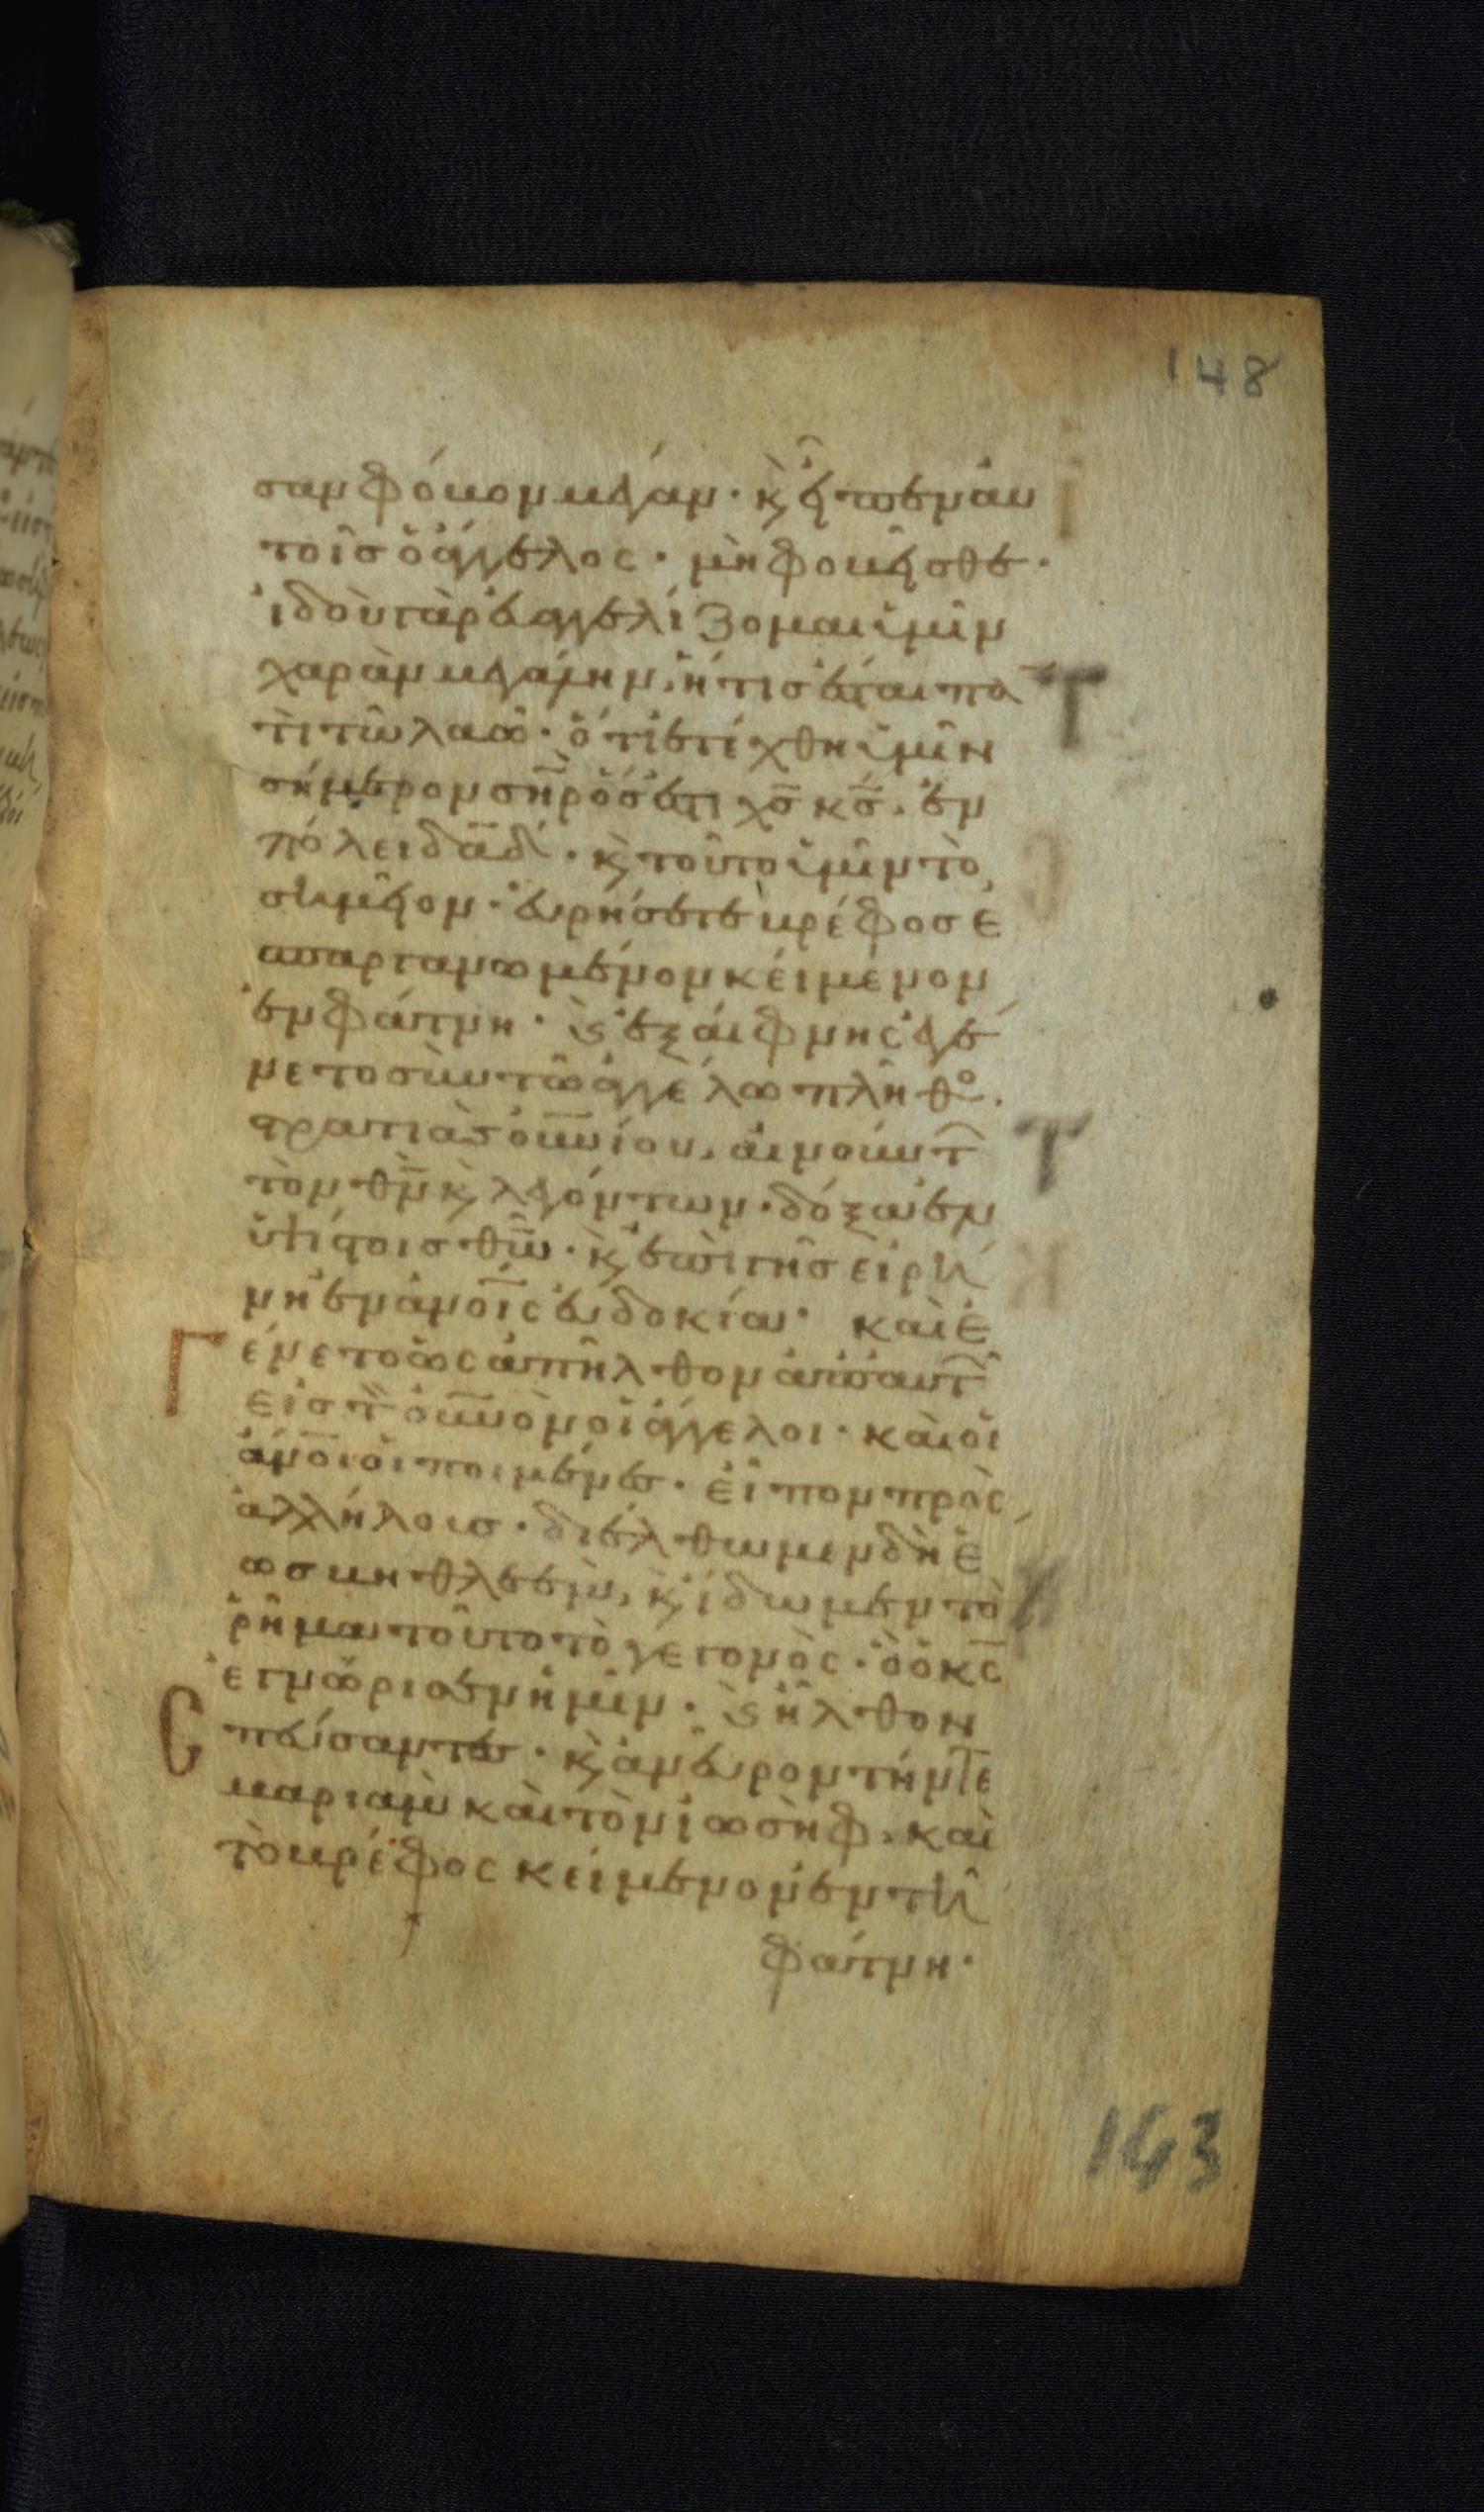 148
σαν φόβον μέγαν· κ(αὶ) εἶπεν αυ
τοῖς ὁ ἄγγελος· μὴ φοβεῖσθε·
ἰδοὺ γὰρ ἐυαγγελίζομαι ὑμῖν
χαρὰν μεγάλην, ἥτις ἔσται πα
τὶ τῶ λαῶ· ὅτι ἐτέχθη ὑμῖν
σήμερον σ̅η̅ρ̅ ὅς ἐστι χ̅ς̅ κ̅ς̅. ἐν
πόλει δ̅α̅δ̅· κ(αὶ) τοῦτο ὑμῖν τὸ
σημεῖον· ἑυρήσετε βρέφος ε
σπαργανωμένον κείμενον
ἐν φάτνη· κ(αὶ) ἐξαίφνης ἐγέ
νετο σὺν τῶ ἀγγέλω πλῆθος
στρατιᾶς ο̅υ̅ν̅ίου, αἰνούντ
τὸν θ̅ν̅ κ(αὶ) λεγόντων· δόξα ἐν
ὑψίστοις θ̅ω̅· κ(αὶ) ἐπὶ γῆς εἰρή
νη ἐν α̅ν̅ο̅ι̅ς ἐυδοκία· καὶ ἐ
Γ έν̣ετο ὡς ἀπῆλθον ἀπ᾽ αυτ
εἰς τ ο̅υ̅ν̅ὸν οἱ ἄγγελοι· καὶ οἱ
α̅ν̅ο̅ι̅ οἱ ποιμένες· εἶπον πρὸς
ἀλλήλους· διέλθωμεν δὴ ἕ
ως βηθλεέμ, κ(αὶ) ἴδωμεν τὸ
ῥῆμα τοῦτο τὸ γεγονὸς· ὃ ὁ κ̅ς̅
ἐγνώρισεν ἡμῖν· κ(αὶ) ἦλθον
Σ πεύσαντες· κ(αὶ) ἀνεῦρον τήν τε
μαριὰμ καὶ τὸν ἰωσὴφ, καὶ
τὸ βρέφος κείμενον ἐν τῆ
φάτνη·
143